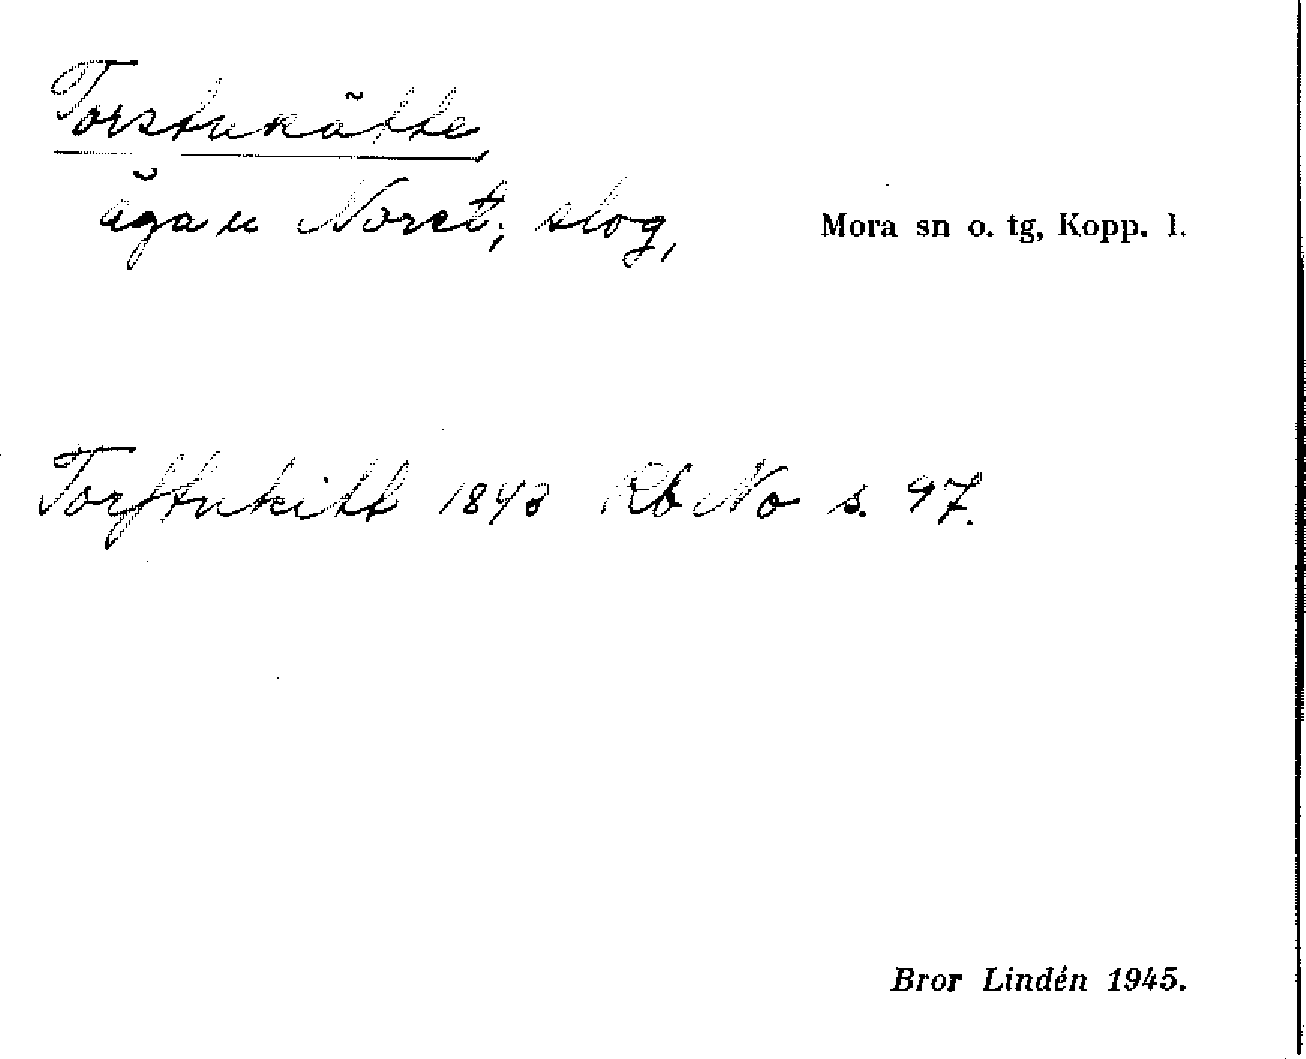 Torstukätte,
äga u Noret; slog,
Mora sn o. tg, Kopp. l.
Torstukitt 1843 Rb No s. 97.
Bror Lindén 1945.